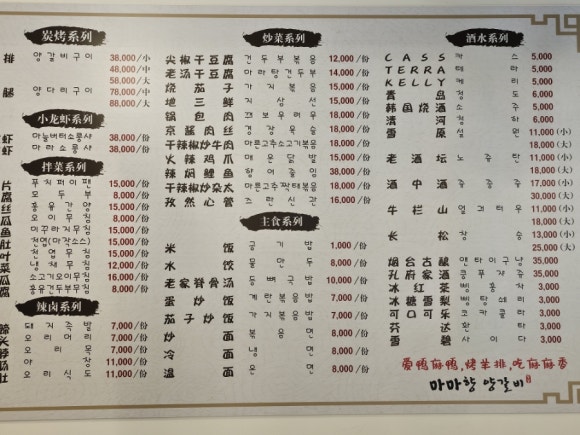 炭烤系列
排 양갈비구이 38,000/小
48,000/中
58,000/大
腿 양다리구이 78,000/中
88,000/大
小龙虾系列
虾 마늘버터소롱샤 38,000/份
虾 마라소롱샤 38,000/份
拌菜系列
片 푸치퍼이펜 15,000/份
腐 모두부 8,000/份
丝 홍유간양 15,000/份
瓜 오이무침 8,000/份
鱼 미꾸라지무침 15,000/份
肚 천엽(마장소스) 15,000/份
叶 천엽무침 15,000/份
菜 냉채무침 12,000/份
瓜 소고기오이무침 16,000/份
腐 홍유건두부무침 8,000/份
辣卤系列
蹄 돼지족발 7,000/份
头 오리머리 7,000/份
脖 오리목 7,000/份
肠 아장 11,000/份
肚 오리식도 11,000/份
炒菜系列
尖椒干豆腐 건두부볶음 12,000/份
老汤干豆腐 마라탕건두부 14,000/份
烧茄子 가지볶음 12,000/份
地三鲜 지삼선 14,000/份
锅包肉 꿔보우러우 18,000/份
京酱肉丝 경장육슬 18,000/份
干辣椒炒牛肉 마른고추소고기볶음 18,000/份
火辣鸡爪 매운닭발 15,000/份
辣焖鲤鱼 향어중임 38,000/份
干辣椒炒杂太 마른고추짝태볶음 18,000/份
孜然心管 즈란신관 18,000/份
主食系列
米饭 공기밥 1,000/份
水饺 물만두 8,000/份
老家脊骨汤 등뼈국밥 10,000/份
蛋炒饭 계란볶음밥 7,000/份
茄子炒饭 가지볶음밥 7,000/份
炒面 볶음면 8,000/份
冷面 냉면 8,000/份
温面 온면 8,000/份
酒水系列
CASS 카스 5,000
TERRA 테라 5,000
KELLY 케리 5,000
青岛 청도 6,000
韩国烧酒 소주 5,000
清河 청하 6,000
雪原 설원 11,000(小)
18,000(大)
老酒坛 노주탄 11,000(小)
18,000(大)
酒中酒 중중주 17,000(小)
30,000(大)
牛栏山 얼궈터우 11,000(小)
18,000(大)
长松 장송 13,000(小)
25,000(大)
烟台古酿 옌타이구냥 35,000
孔府家酒 콩푸쟈주 35,000
冰红茶 삥홍차 3,000
冰糖雪梨 삥탕쉐리 3,000
可口可乐 코카콜라 3,000
芬达 환타 3,000
雪碧 사이다 3,000
爱鸭麻鸭,烤羊排,吃麻麻香
마마향 양갈비